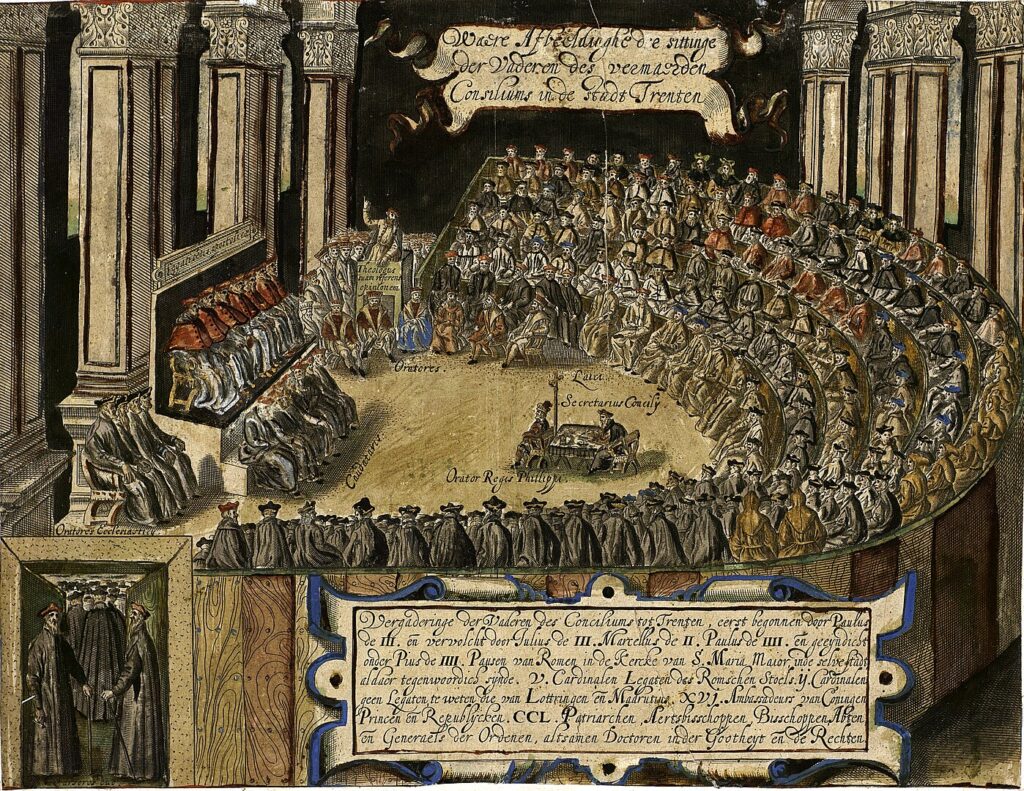 Waere Afbeeldinghe d'e sittinge
der Vaderen des vermaerden
Consiliums in de stadt Trenten
Theologus
suam referens
opinionem
Oratores
Laici
Secretarius Concilÿ
Consiliarii
Orator Regis Phillippi
Oratores Ecclesiastici
Vergaderinge der Vaderen des Conciliums tot Trenten, eerst begonnen door Paulus
de III. en vervolcht door Iulius de III. Marcellus de II. Paulus de IIII. en geeyndicht
onder Pius de IIII. Pausen van Romen in de Kercke van S. Maria Maior, in de selve stadt
aldaer tegenwoordich synde. V. Cardinalen Legaten des Romschen Stoels. ij. Cardinalen
geen Legaten te weten die van Lottringen en Madrutius, XVJ. Ambassadeurs van Coningen
Princen en Republÿcken. CCL. Patriarchen, Aertsbisschoppen, Bisschoppen, Abten
en Generaels der Ordenen, altsamen Doctoren in der Gootheyt en de Rechten